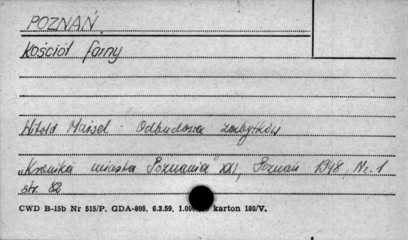 POZNAŃ
Kościół farny
Witold Maisel - Odbudowa zabytków
"Kronika miasta Poznania" XXI, Poznań 1948, Nr. 1
str. 82
CWD B-15b Nr 515/P. GDA-805. 6.3.59. karton 180/V.